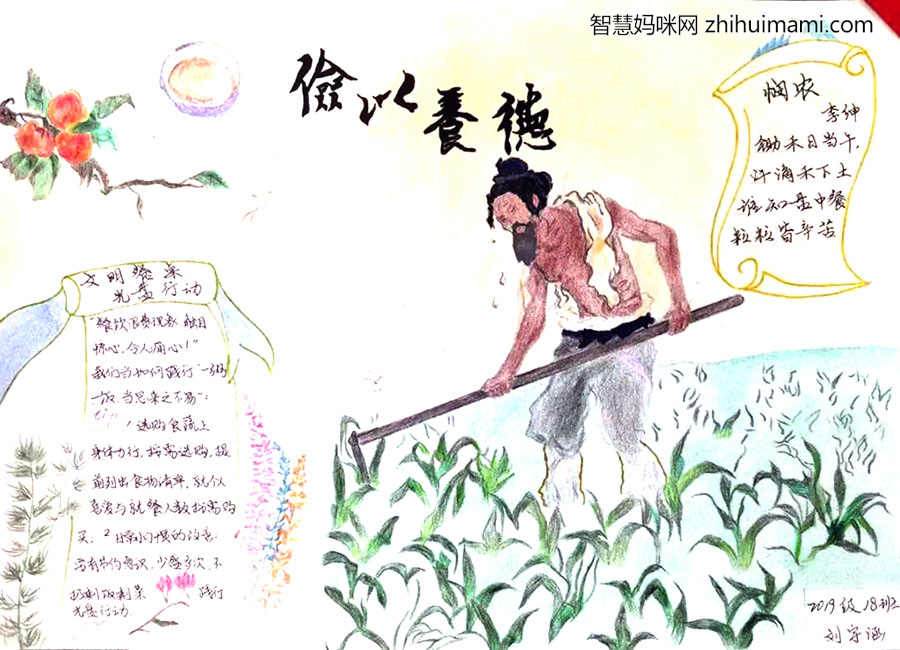 智慧妈咪网 zhihuimami.com
儉以養德
悯农
李绅
锄禾日当午,
汗滴禾下土
谁知盘中餐
粒粒皆辛苦
文明餐桌
光盘行动
"餐饮浪费现象 触目
惊心,令人痛心!"
我们当如何践行"一粥
一饭,当思来之不易":
tip
1 选购食蔬上
身体力行,按需选购,提
前列出食物清单,就以
喜爱与就餐人数按需购
买. 2 日常小习惯的改善:
没有节约意识,少盛多次,不
扔剩饭剩菜 践行
光盘行动.
2019级18班
刘宇涵